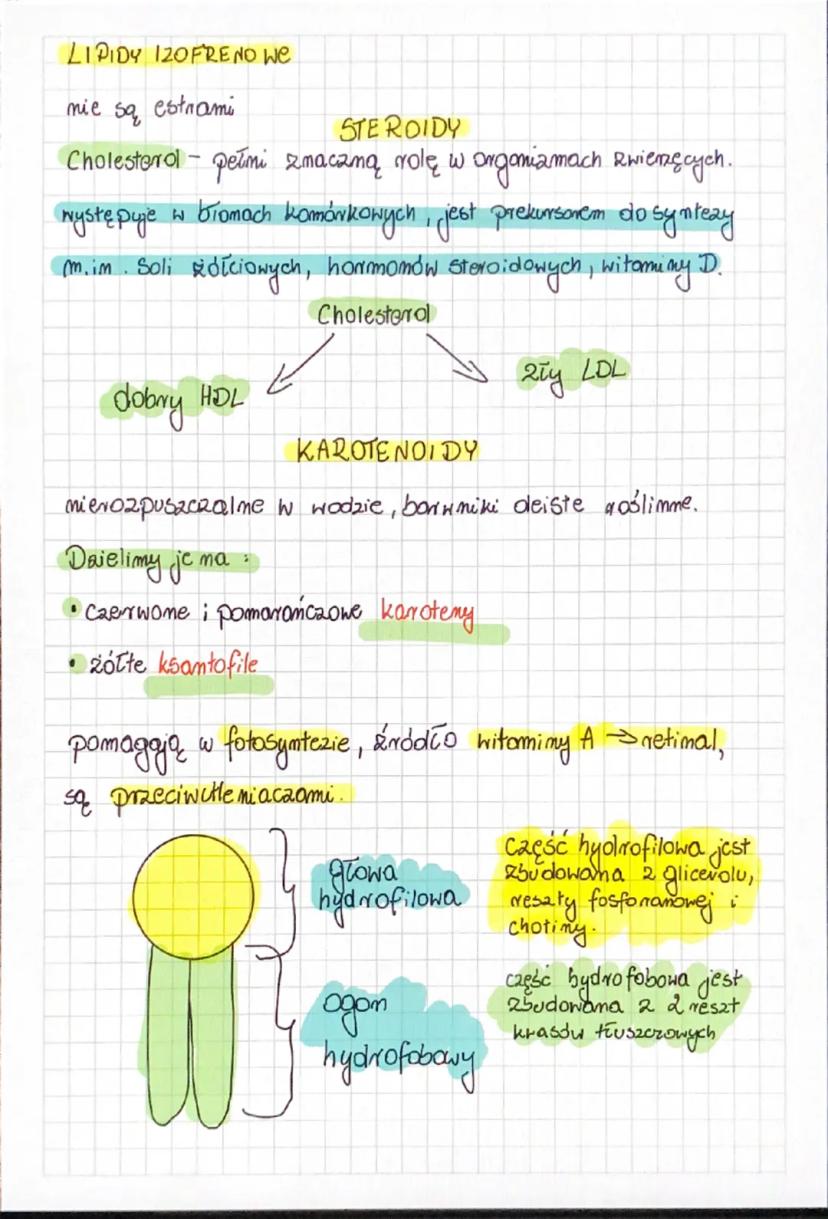 LIPIDY IZOFRENOWE
nie są estrami
STEROIDY
Cholesterol - pełni znaczną rolę w organizmach zwierzęcych.
występuje w błonach komórkowych, jest prekursorem do syntezy
m.in. Soli żółciowych, hormonów steroidowych, witaminy D.
Cholesterol
dobry HDL
zły LDL
KAROTENOIDY
nierozpuszczalne w wodzie, barwniki oleiste roślinne.
Dzielimy je na :
• czerwone i pomarańczowe karoteny
• żółte ksantofile
pomagają w fotosyntezie, źródło witaminy A → retinal,
są przeciwutleniaczami.
głowa
hydrofilowa
część hydrofilowa jest
zbudowana z glicerolu,
reszty fosforanowej i
choliny.
ogon
hydrofobowy
część hydrofobowa jest
zbudowana z 2 reszt
kwasów tłuszczowych